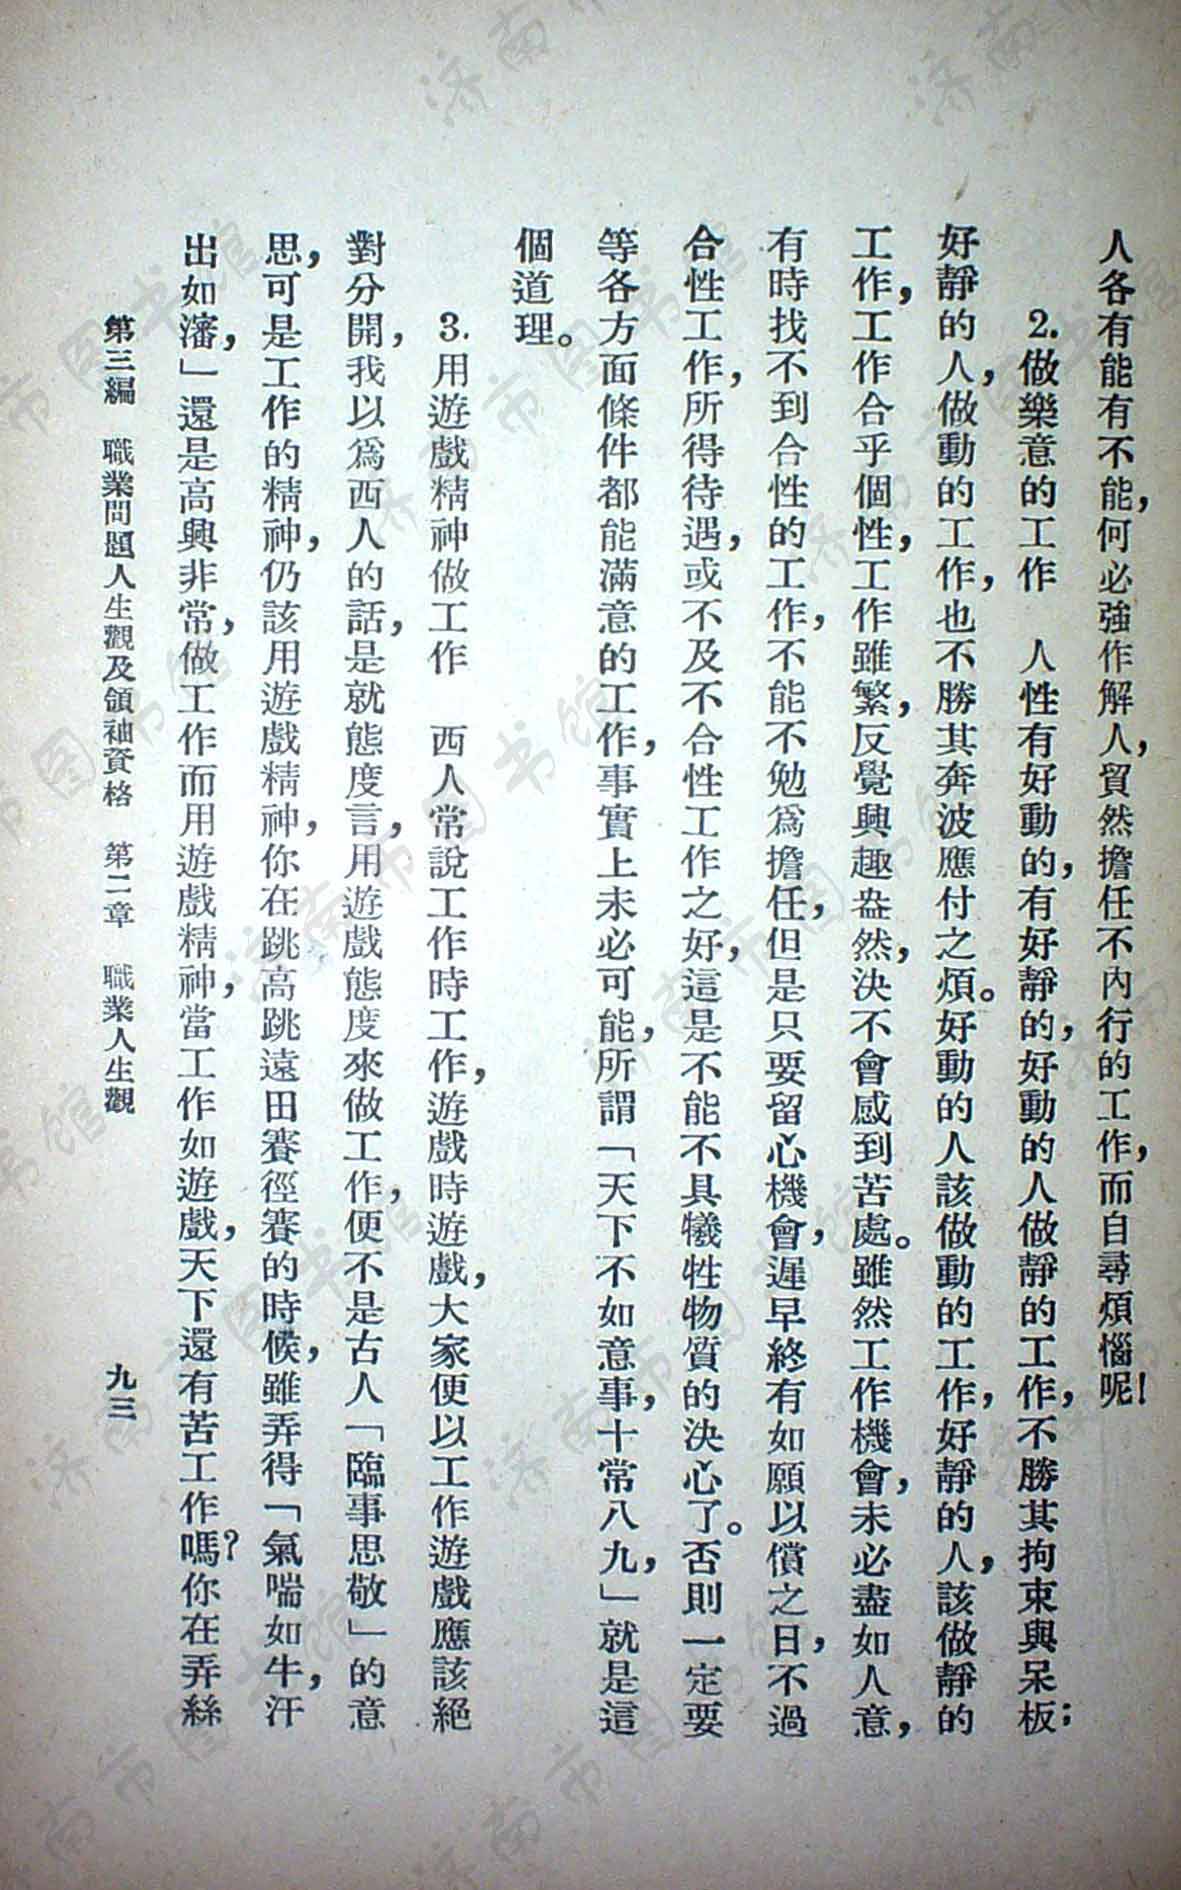 人各有能有不能，何必強作解人，貿然擔任不內行的工作，而自尋煩惱呢！
2.做樂意的工作　人性有好動的，有好靜的，好動的人做靜的工作，不勝其拘束與呆板；
好靜的人，做動的工作，也不勝其奔波應付之煩。好動的人該做動的工作，好靜的人，該做靜的
工作，工作合乎個性，工作雖繁，反覺興趣盎然，決不會感到苦處。雖然工作機會，未必盡如人意，
有時找不到合性的工作，不能不勉爲擔任，但是只要留心機會，遲早終有如願以償之日，不過
合性工作，所得待遇，或不及不合性工作之好，這是不能不具犧牲物質的決心了。否則一定要
等各方面條件都能滿意的工作，事實上未必可能，所謂「天下不如意事，十常八九，」就是這
個道理。
3.用遊戲精神做工作　西人常說工作時工作，遊戲時遊戲，大家便以工作遊戲應該絕
對分開，我以爲西人的話，是就態度言，用遊戲態度來做工作，便不是古人「臨事思敬」的意
思，可是工作的精神，仍該用遊戲精神，你在跳高跳遠田賽徑賽的時候，雖弄得「氣喘如牛，汗
出如瀋，」還是高興非常，做工作而用遊戲精神，當工作如遊戲，天下還有苦工作嗎？你在弄絲
第三編　職業問題人生觀及領袖資格　第二章　職業人生觀　九三
济南市图书馆